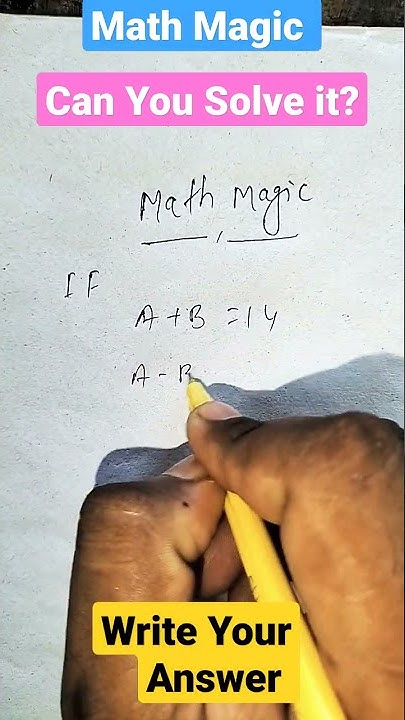 Math Magic
Can You Solve it?
Math Magic
IF
A + B = 14
A - B
Write Your
Answer